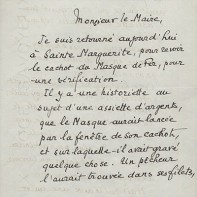 Monsieur le Maire,
Je suis retourné aujourd'hui
à Sainte Marguerite, pour revoir
le cachot du Masque de Fer, pour
une vérification.
Il y a une historiette au
sujet d'une assiette d'argent,
que le Masque aurait lancée
par la fenêtre de son cachot,
et sur laquelle il avait gravé
quelque chose. Un pêcheur
l'aurait trouvée dans ses filets,